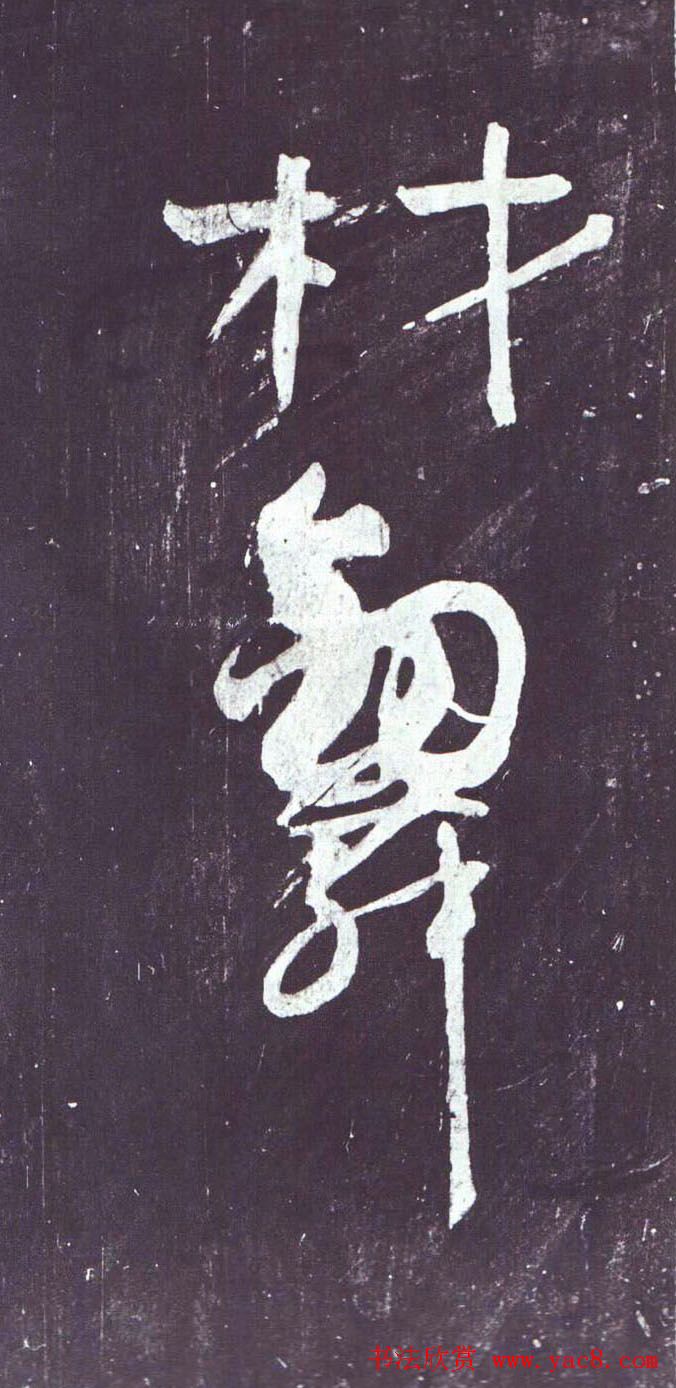 材
书法欣赏 www.yac8.com